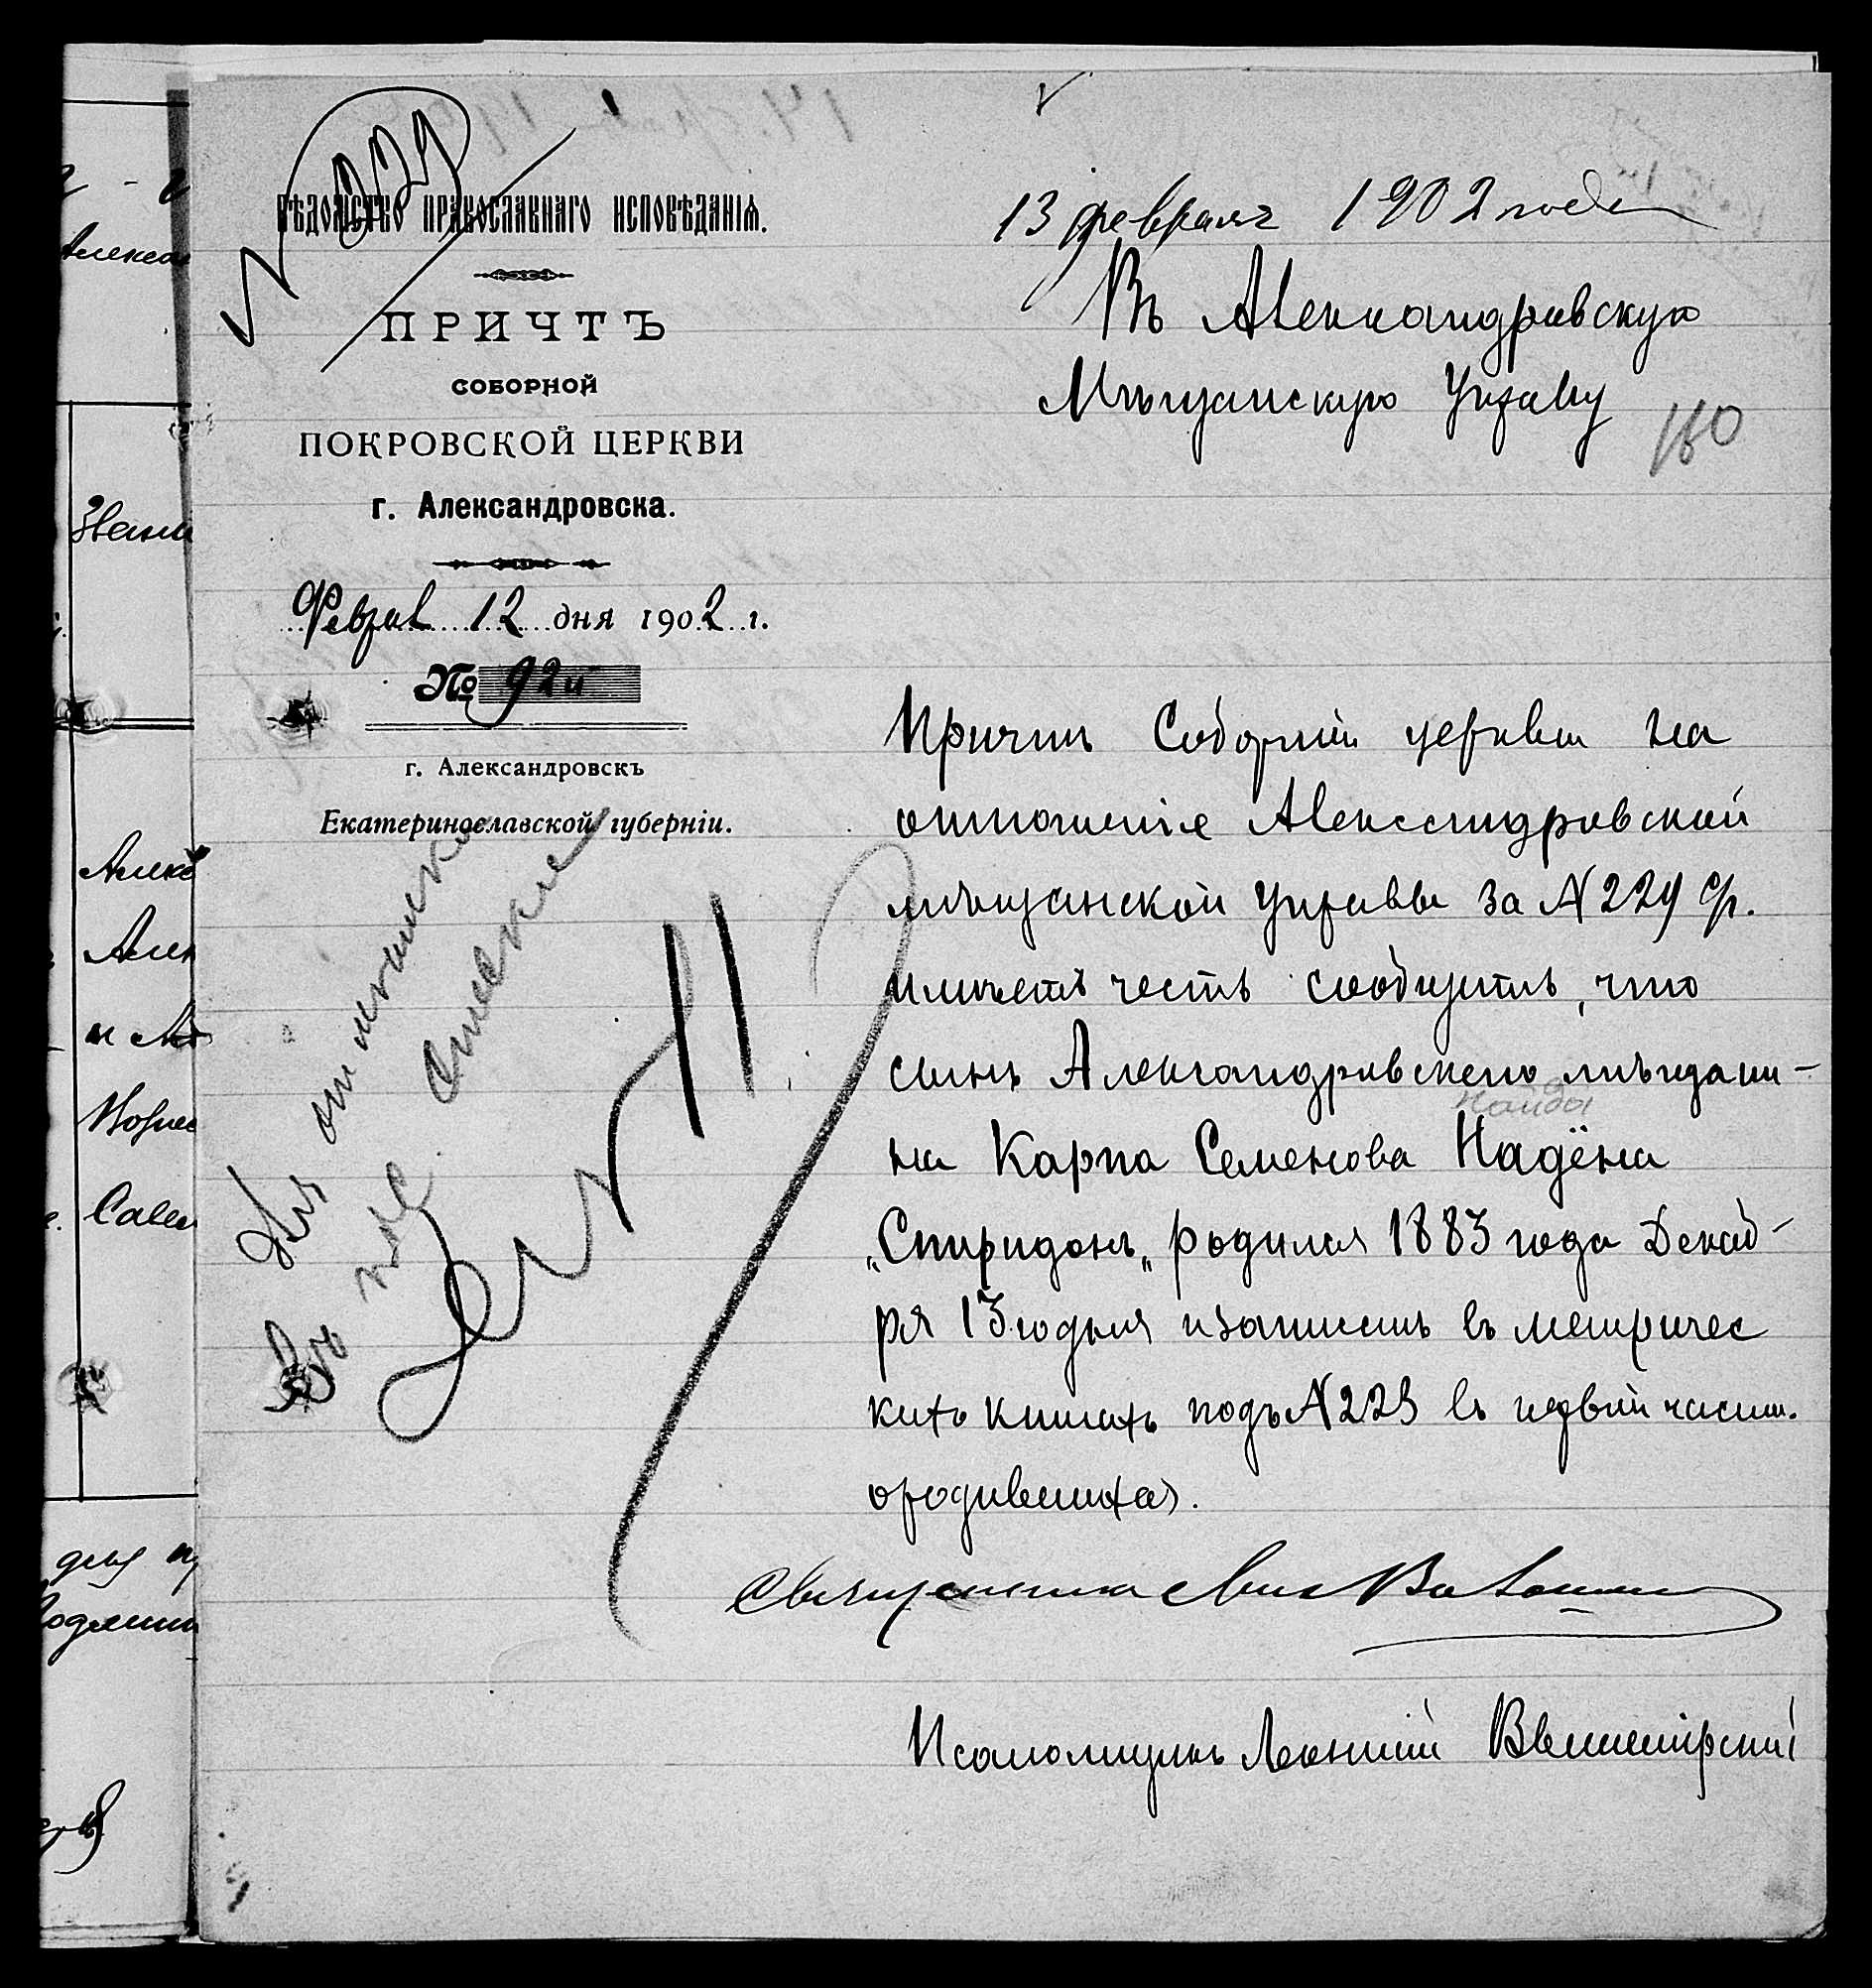 ВѢДОМСТВО ПРАВОСЛАВНАГО ИСПОВѢДАНІЯ.
ПРИЧТЪ
СОБОРНОЙ
ПОКРОВСКОЙ ЦЕРКВИ
г. Александровска.
Феврал 12 дня 1902 г.
№ 92
г. Александровскъ
Екатеринославской губерніи.
13 февраля 1902 года
Въ Александровскую
Мѣщанскую Управу
160
Причтъ Соборной церкви на
отношеніе Александровской
мѣщанской Управы за № 229 ср.
имѣетъ честь сообщить, что
сынъ Александровскаго мѣщани-
Найда
на Карпа Семенова Надёна
„Спиридонъ„ родился 1883 года Декаб-
ря 13го дня и записанъ въ метричес
кихъ книгахъ подъ № 223 въ первой части.
о родившихся.
Священникъ
Псаломщикъ Леонтій
Для отмѣтки
въ пос. спискѣ
Звани